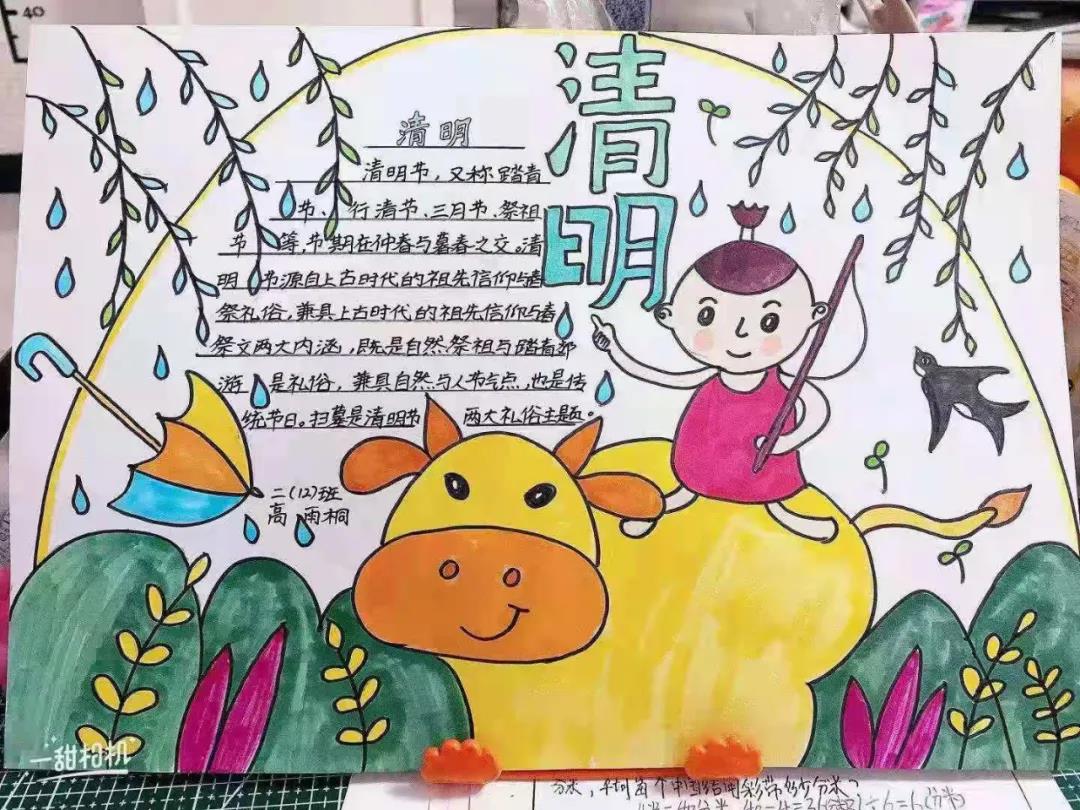 40
清明
清明
清明节，又称踏青
节、行清节、三月节、祭祖
节等，节期在仲春与暮春之交。清
明节源自上古时代的祖先信仰与春
祭礼俗，兼具上古时代的祖先信仰与春
祭文两大内涵，既是自然祭祖与踏青郊
游是礼俗，兼具自然与人节气点，也是传
统节日。扫墓是清明节两大礼俗主题。
二(12)班
高雨桐
一甜相机